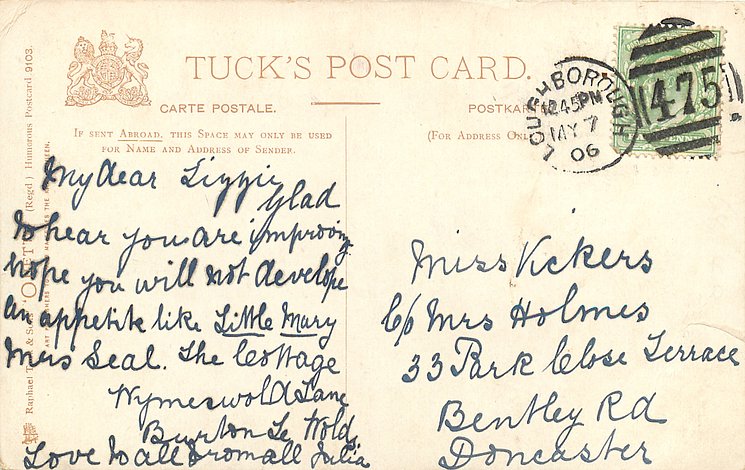 TUCK'S POST CARD.
CARTE POSTALE.
POSTKAR
IF SENT ABROAD, THIS SPACE MAY ONLY BE USED
FOR NAME AND ADDRESS OF SENDER.
(FOR ADDRESS ONL
LOUGHBOROUGH
12 45 PM
MY 7
06
475
My dear Lizzie
Glad
to hear you are improving
hope you will not develope
an appetite like Little Mary
Mers Seal. The Cottage
Wymeswold Lane
Burton Le Wolds.
Love to all from all Julia
Miss Vickers
c/o Mrs Holmes
33 Park Close Terrace
Bentley Rd
Doncaster
Raphael & Sons' (Regd) Humorous Postcard 9103.